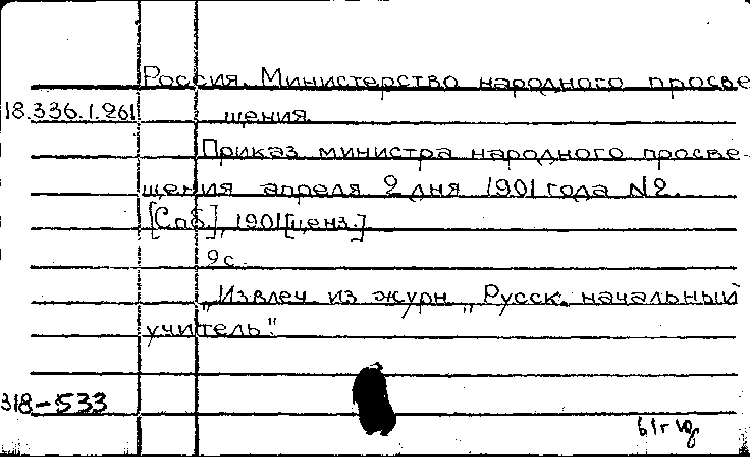 Россия. Министерство народного просве
18.336.1.261 щения
Приказ министра народного просве-
щения апреля 2 дня 1901 года №2.
[Спб.], 1901 [ценз.]
9 с.
"Извлеч. из журн. "Русск. начальный
учитель".
318-533
61г